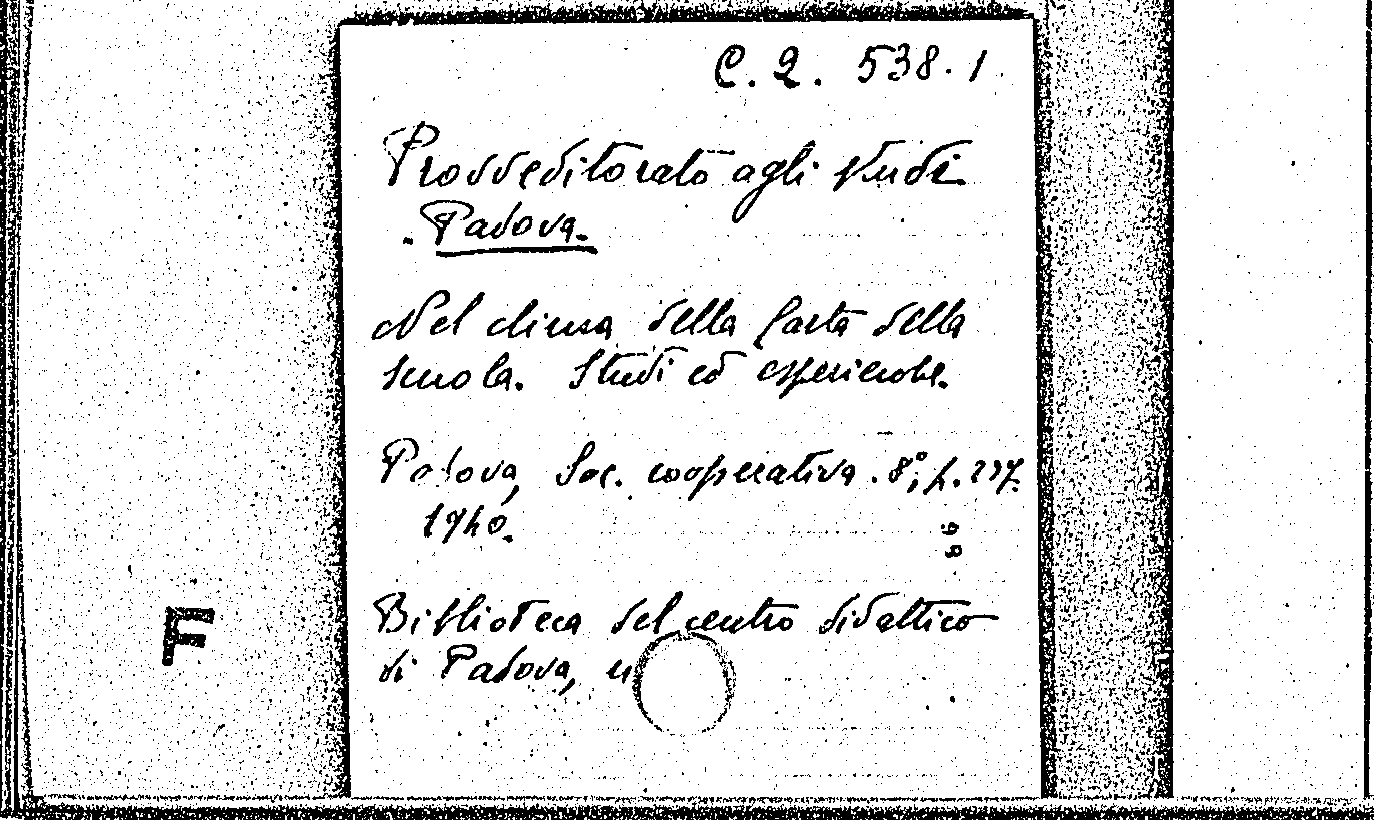 C. 2. 538. 1
Provveditorato agli studi
- Padova.
Nel clima della Carta della
scuola. Studi ed esperienze.
Padova, Soc. cooperativa. 8°, p. 237.
1940.
Biblioteca del centro didattico
di Padova,
F